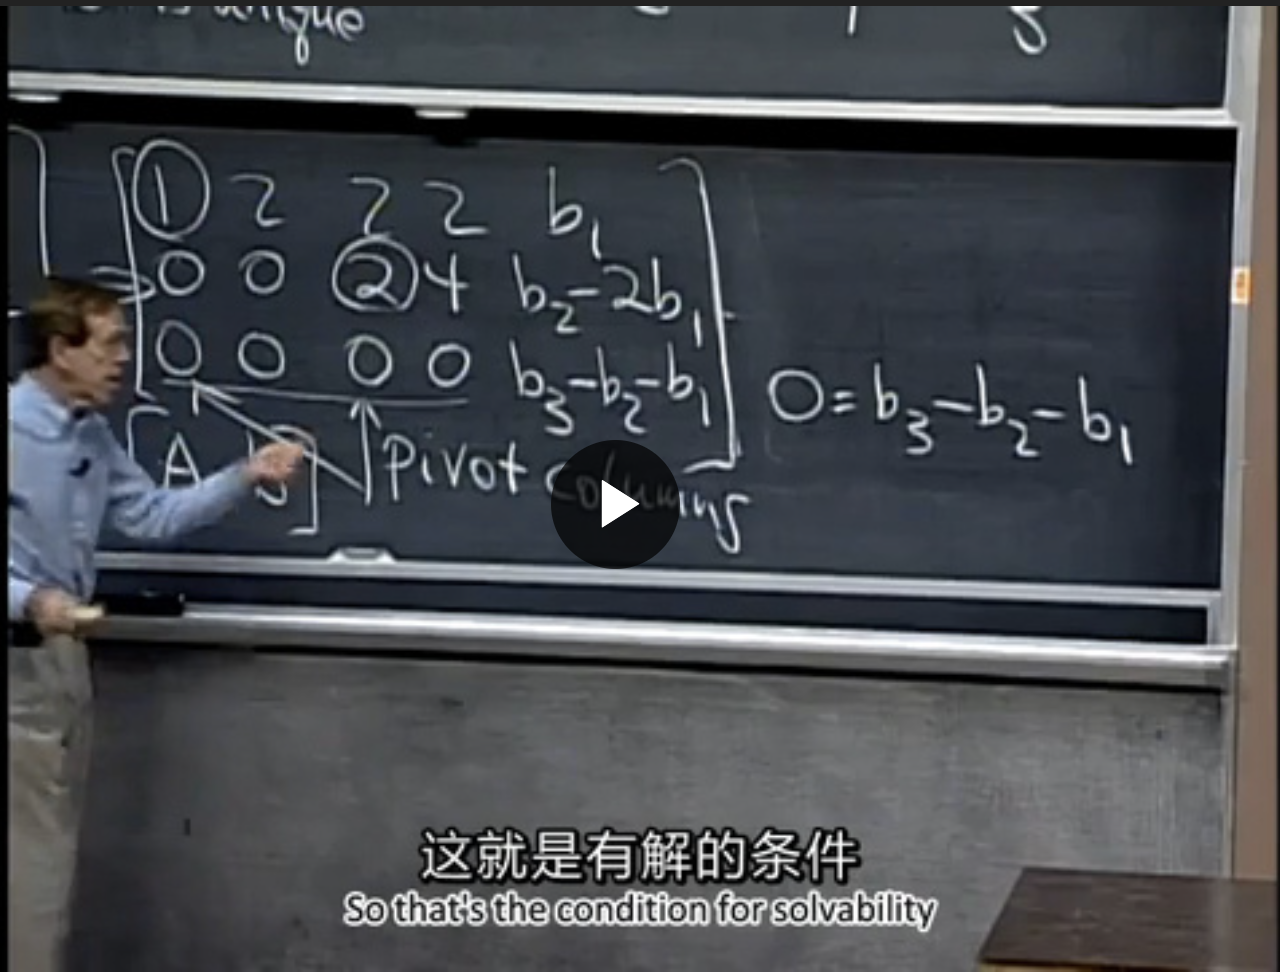 unique
1 2 2 2 b₁
0 0 2 4 b₂-2b₁
0 0 0 0 b₃-b₂-b₁ 0=b₃-b₂-b₁
[A b] Pivot columns
这就是有解的条件
So that's the condition for solvability